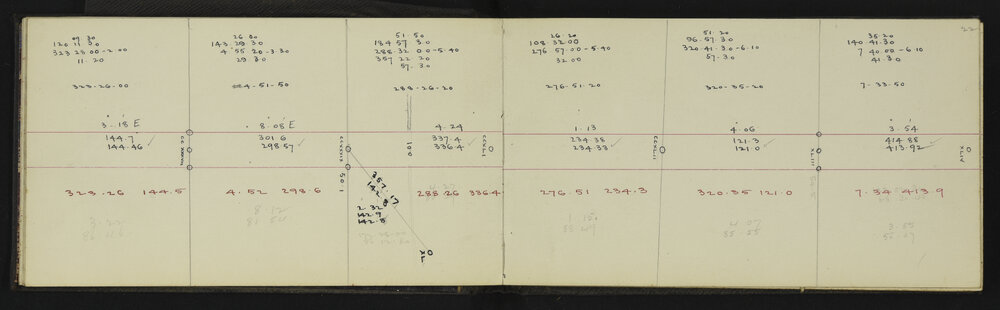 09.30
120 11 30
323 23 00-2.00
11.20
323-26-00
3.18 E
144.7
144.46
323.26 144.5
26.00
143.29.30
4 55 20-3.30
29 30
4-51-50
8.08 E
301.6
298.57
4.52 298.6
51.50
184 57 30
288.32 00-5.40
357 22 20
57.30
288-26-20
4.24
337.4
336.4
288.26 336.4
357.17
142.8
2.32
142.9
142.8
50.1
26.20
108.32.00
276.57.00-5.40
32 00
276-51.20
1.13
234.38
234.33
276.51 234.3
51.20
96.57.30
320.41.30-6.10
57.30
320-35-20
4.06
121.3
121.0
320.35 121.0
'22
35 20
140.41.30
7 40 00-6.10
41.30
7-33.50
3.54
414.88
413.92
XLV
7.34 413.9